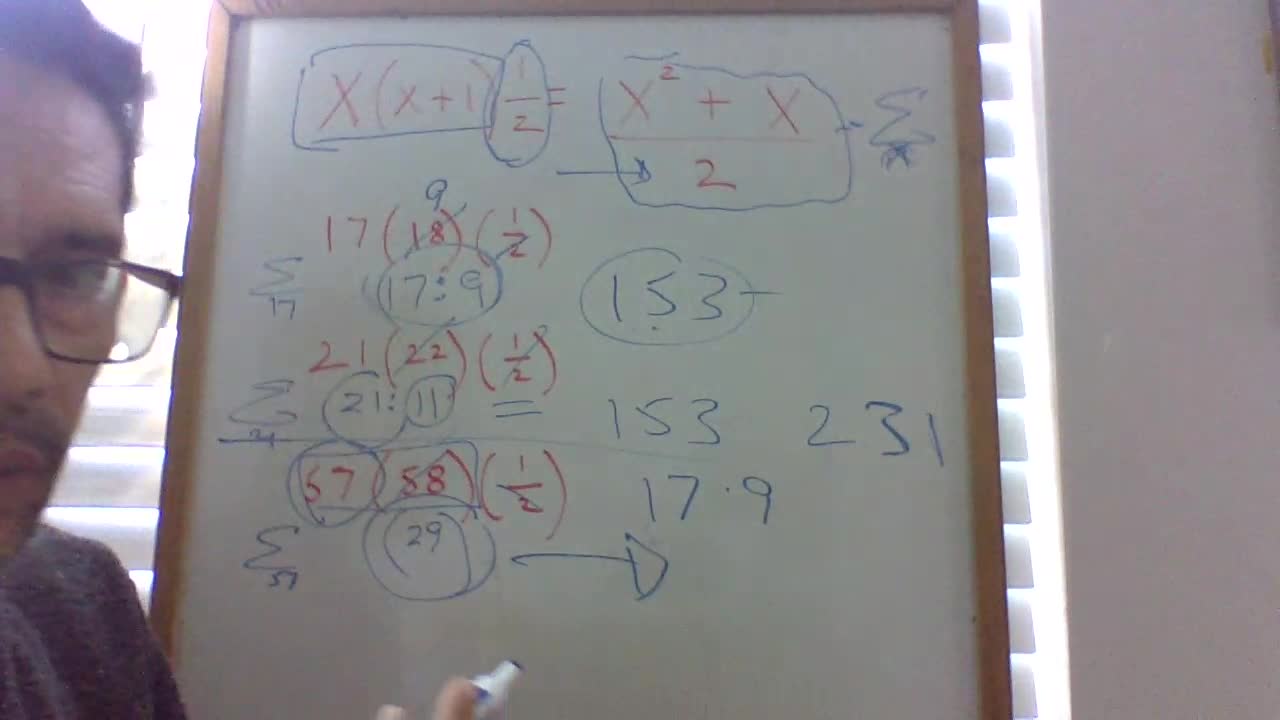 X(x+1) 1/2 = X² + X / 2 - Σ
9
17(18)(1/2)
Σ 17 17:9 153 -
21(22)(1/2)
Σ 21 21:11 = 153 231
57(58)(1/2) 17·9
Σ 57 29 →